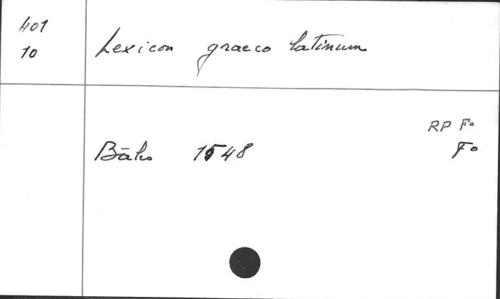 401
10
Lexicon graeco latinum
RP Fo
Fo
1548